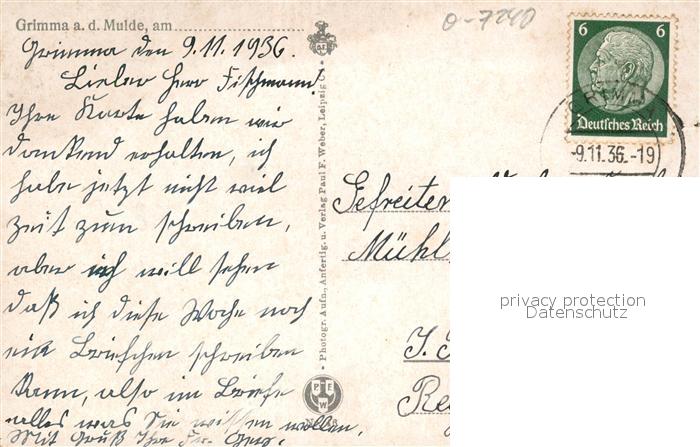 Grimma a. d. Mulde, am
0-7240
Grimma den 9.11.1936.
Lieber Herr Fischmann!
Ihre Karte haben wir
dankend erhalten, ich
habe jetzt nicht viel
Zeit zum schreiben,
aber ich will sehen
daß ich diese Woche noch
ein Briefchen schreiben
kann, also im Briefe
alles was Sie wissen wollen.
Mit Gruß Ihre
Photogr. Aufn., Anfertig. u. Verlag Paul F. Weber, Leipzig C 1
PFW
6 6
Deutsches Reich
GRIMMA
-9.11.36.-19
Gefreiter
Mühl
privacy protection
Datenschutz